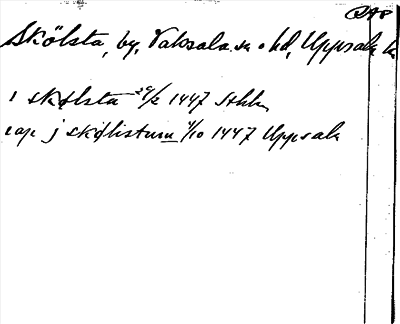 SAP
Skölsta, by, Vaksala sn o hd, Uppsala l.
i skølsta 29/2 1447 Sthlm
i ap. j skølistum 4/10 1447 Uppsala